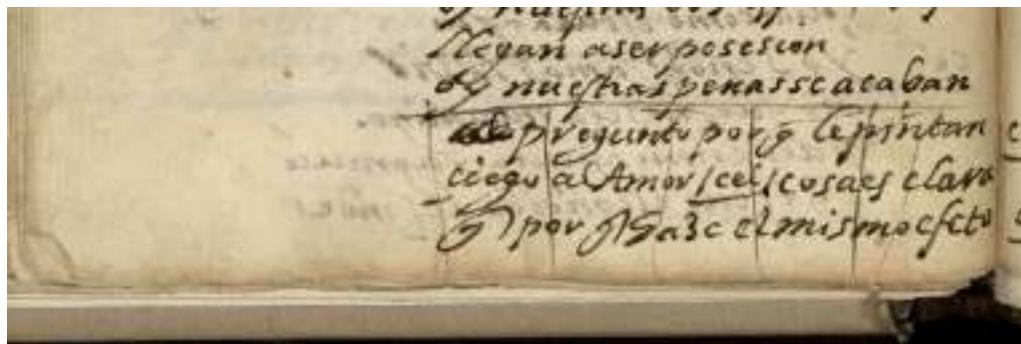 llegan a ser posesion
oy nuestras penas se acaban
pregunto por q̃ le pintan
ciego a Amor / cel / cosa es clara
q̃ por q̃ haze el mismo efeto